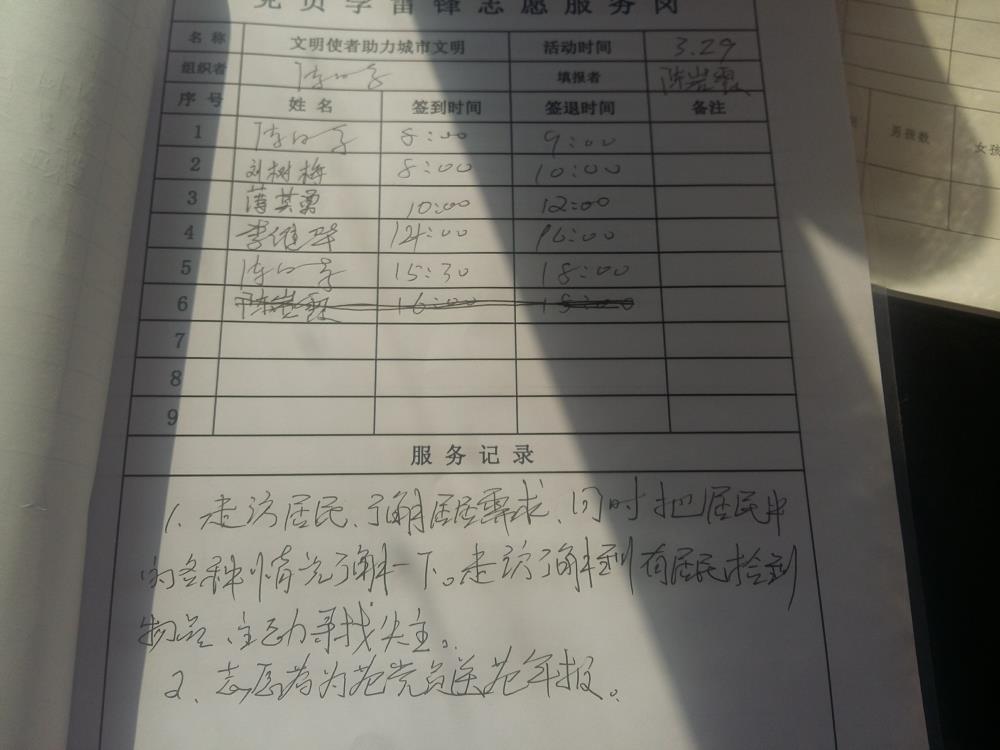 党员学雷锋志愿服务岗
名称 文明使者助力城市文明 活动时间 3.29
组织者 填报者 陈岩霞
序号 姓名 签到时间 签退时间 备注
1 8:00 9:00
2 刘树梅 8:00 10:00
3 薄其勇 10:00 12:00
4 李继华 14:00 16:00
5 15:30 18:00
6 陈岩霞 16:00 18:00
7
8
9
服务记录
1、走访居民、了解居民需求、同时把居民中
的各种情况了解一下。走访了解到有居民捡到
物品、主动寻找失主。
2、志愿者为老党员送老年报。
男孩数
女孩